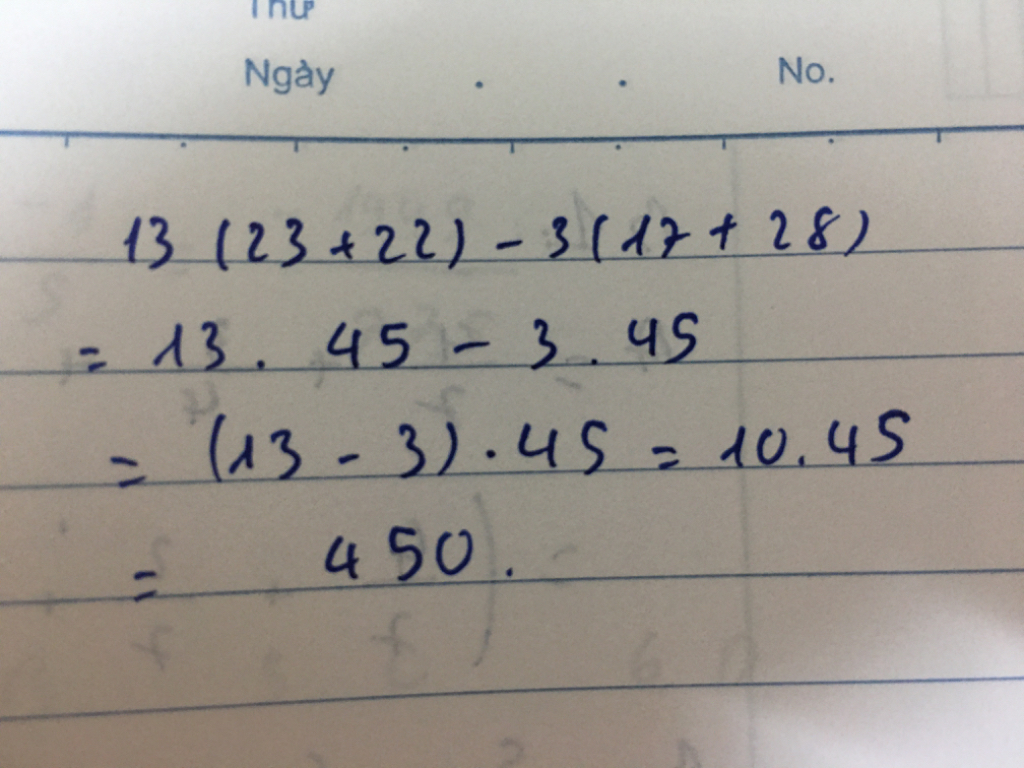 Thứ
Ngày . . No.
13 (23 + 22) - 3 (17 + 28)
= 13 . 45 - 3 . 45
= (13 - 3) . 45 = 10 . 45
= 450.